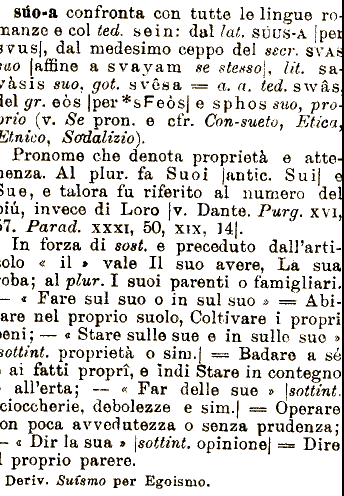 súo-a confronta con tutte le lingue ro-
manze e col ted. sein: dal lat. SÚUS-A |per
svus|, dal medesimo ceppo del scr. SVAS
suo |affine a svayam se stesso|, lit. sa-
vàsis suo, got. svêsa = a. a. ted. swâs,
del gr. eòs |per *sFeòs| e sphos suo, pro-
prio (v. Se pron. e cfr. Con-sueto, Etica,
Etnico, Sodalizio).
Pronome che denota proprietà e atte-
nenza. Al plur. fa Suoi |antic. Sui| e
Sue, e talora fu riferito al numero del
piú, invece di Loro |v. Dante. Purg. XVI,
57. Parad. XXXI, 50, XIX, 14|.
In forza di sost. e preceduto dall'arti-
colo « il » vale Il suo avere, La sua
roba; al plur. I suoi parenti o famigliari.
— « Fare sul suo o in sul suo » = Abi-
tare nel proprio suolo, Coltivare i propri
beni; — « Stare sulle sue e in sulle sue »
|sottint. proprietà o sim.| = Badare a sé
o ai fatti proprî, e indi Stare in contegno
o all'erta; — « Far delle sue » |sottint.
scioccherie, debolezze e sim.| = Operare
con poca avvedutezza o senza prudenza;
— « Dir la sua » |sottint. opinione| = Dire
il proprio parere.
Deriv. Suísmo per Egoismo.